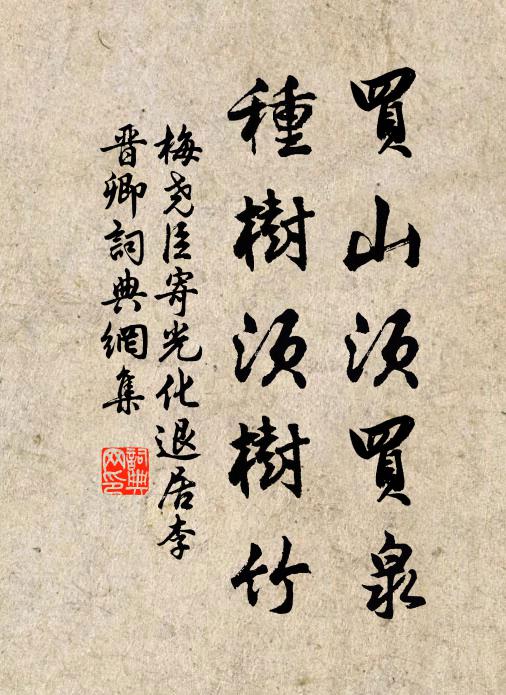 買山須買泉
種樹須樹竹
梅堯臣寄光化退居李
晋卿詞典網集
詞典
网印